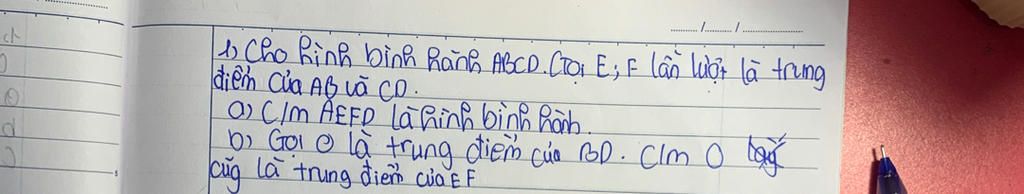 .../.../...
1) Cho hình bình hành ABCD. Gọi E, F lần lượt là trung
điểm của AB và CD.
a) C/m AEFD là hình bình hành.
b) Gọi O là trung điểm của BD. C/m O
cũg là trung điểm của EF